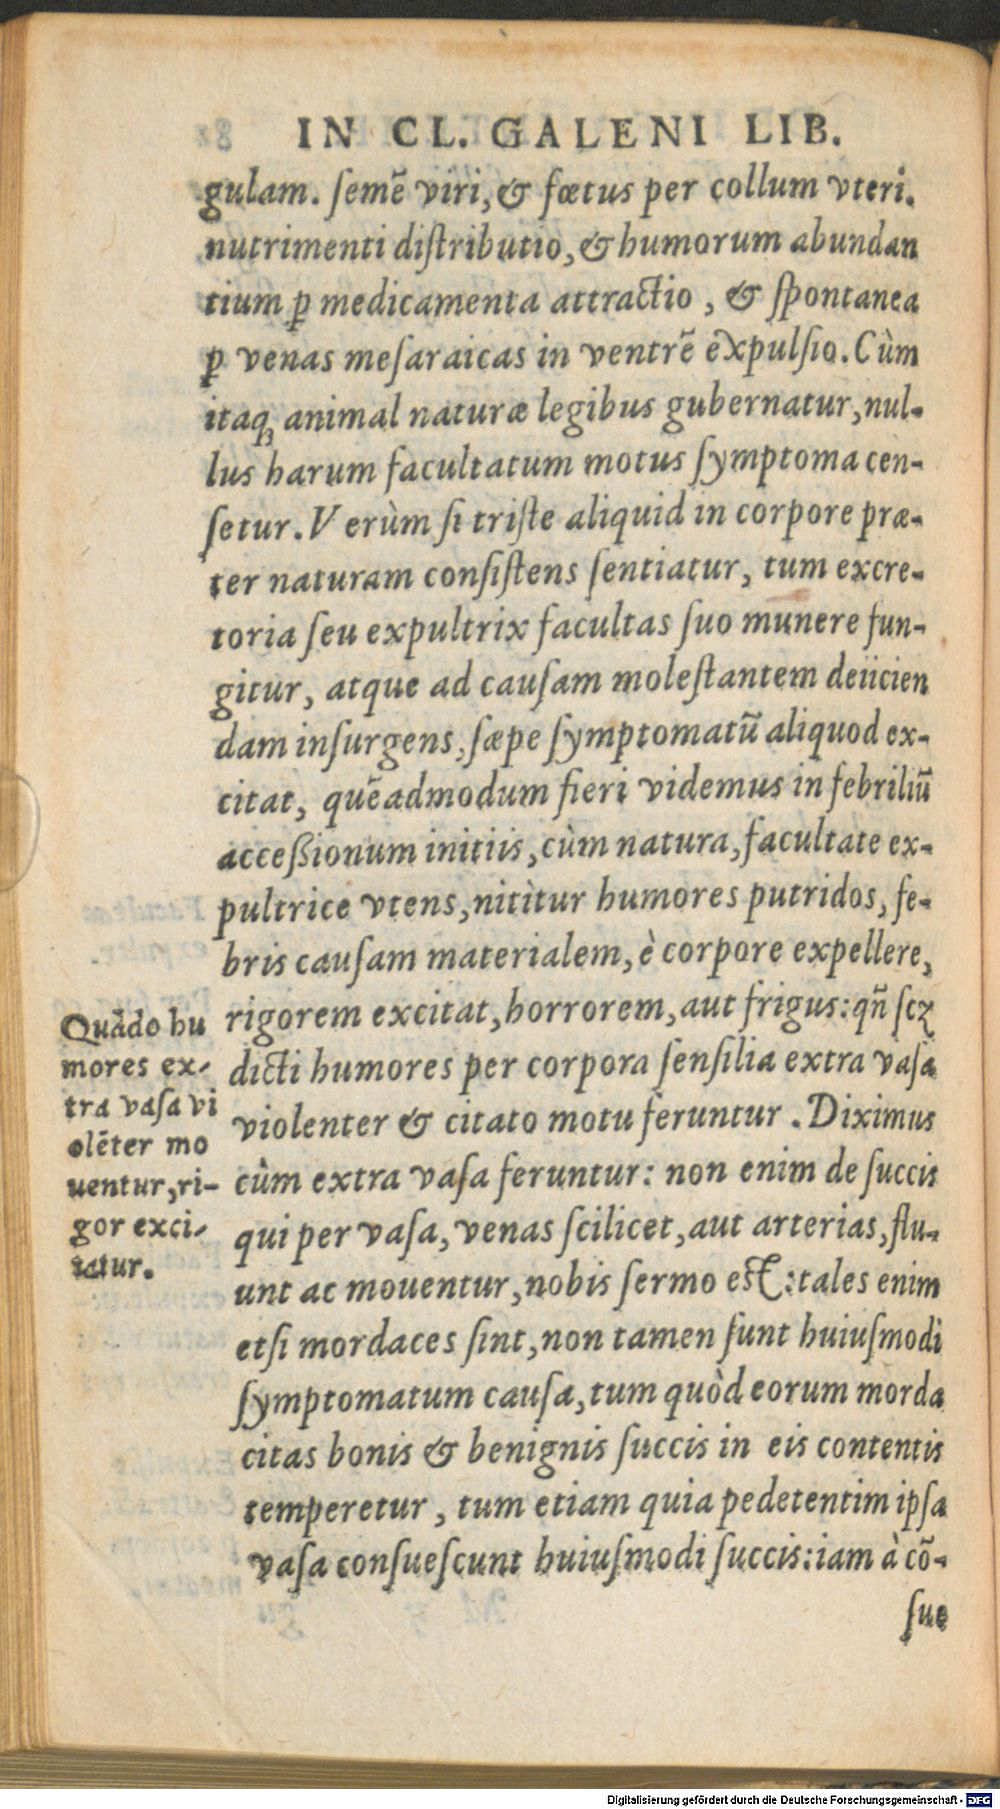 IN CL. GALENI LIB.
gulam. ſemē viri, & fœtus per collum vteri.
nutrimenti diſtributio, & humorum abundan
tium ꝑ medicamenta attractio, & ſpontanea
ꝑ venas meſaraicas in ventrē expulſio. Cùm
itaq; animal naturæ legibus gubernatur, nul-
lus harum facultatum motus ſymptoma cen-
ſetur. Verùm ſi triſte aliquid in corpore præ-
ter naturam conſiſtens ſentiatur, tum excre-
toria ſeu expultrix facultas ſuo munere fun-
gitur, atque ad cauſam moleſtantem deiicien
dam inſurgens, ſæpe ſymptomatū aliquod ex-
citat, quēadmodum fieri videmus in febriliū
acceßionum initiis, cùm natura, facultate ex-
pultrice vtens, nititur humores putridos, fe-
bris cauſam materialem, è corpore expellere,
rigorem excitat, horrorem, aut frigus: qñ ſcꝫ
dicti humores per corpora ſenſilia extra vaſa
violenter & citato motu feruntur. Diximus
cùm extra vaſa feruntur: non enim de ſuccis
qui per vaſa, venas ſcilicet, aut arterias, flu-
unt ac mouentur, nobis ſermo eſt: tales enim
etſi mordaces ſint, non tamen ſunt huiuſmodi
ſymptomatum cauſa, tum quòd eorum morda
citas bonis & benignis ſuccis in eis contentis
temperetur, tum etiam quia pedetentim ipſa
vaſa conſueſcunt huiuſmodi ſuccis: iam à cō-
ſue
Quādo hu
mores ex-
tra vaſa vi
olēter mo
uentur, ri-
gor exci-
tatur.
Digitalisierung gefördert durch die Deutsche Forschungsgemeinschaft - DFG